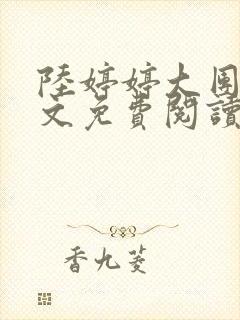 陸婷婷大圉
文免費閱讀
香九菱